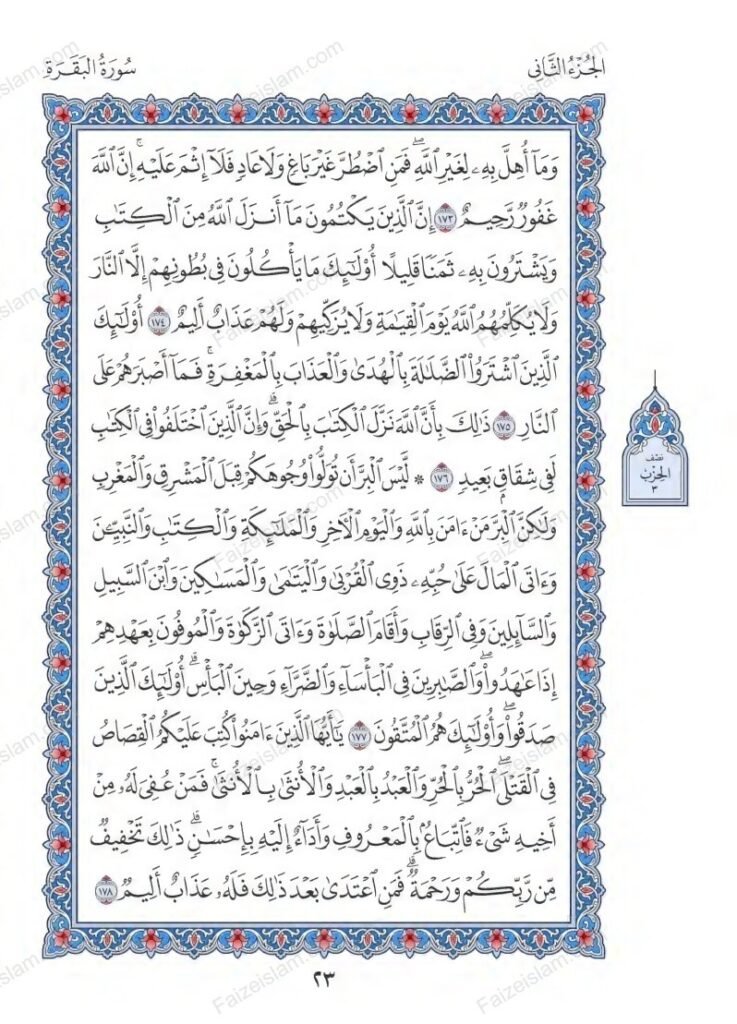 الجُزْءُ الثَّانِي
سُورَةُ البَقَرَةِ
وَمَآ أُهِلَّ بِهِۦ لِغَيْرِ ٱللَّهِۖ فَمَنِ ٱضْطُرَّ غَيْرَ بَاغٍ وَلَا عَادٍ فَلَآ إِثْمَ عَلَيْهِۚ إِنَّ ٱللَّهَ
غَفُورٌ رَّحِيمٌ ١٧٣ إِنَّ ٱلَّذِينَ يَكْتُمُونَ مَآ أَنزَلَ ٱللَّهُ مِنَ ٱلْكِتَٰبِ
وَيَشْتَرُونَ بِهِۦ ثَمَنًا قَلِيلًا أُو۟لَٰٓئِكَ مَا يَأْكُلُونَ فِي بُطُونِهِمْ إِلَّا ٱلنَّارَ
وَلَا يُكَلِّمُهُمُ ٱللَّهُ يَوْمَ ٱلْقِيَٰمَةِ وَلَا يُزَكِّيهِمْ وَلَهُمْ عَذَابٌ أَلِيمٌ ١٧٤ أُو۟لَٰٓئِكَ
ٱلَّذِينَ ٱشْتَرَوُا۟ ٱلضَّلَٰلَةَ بِٱلْهُدَىٰ وَٱلْعَذَابَ بِٱلْمَغْفِرَةِۚ فَمَآ أَصْبَرَهُمْ عَلَى
ٱلنَّارِ ١٧٥ ذَٰلِكَ بِأَنَّ ٱللَّهَ نَزَّلَ ٱلْكِتَٰبَ بِٱلْحَقِّۗ وَإِنَّ ٱلَّذِينَ ٱخْتَلَفُوا۟ فِي ٱلْكِتَٰبِ
لَفِي شِقَاقٍۭ بَعِيدٍ ١٧٦ * لَّيْسَ ٱلْبِرُّ أَن تُوَلُّوا۟ وُجُوهَكُمْ قِبَلَ ٱلْمَشْرِقِ وَٱلْمَغْرِبِ
وَلَٰكِنَّ ٱلْبِرَّ مَنْ ءَامَنَ بِٱللَّهِ وَٱلْيَوْمِ ٱلْأَخِرِ وَٱلْمَلَٰٓئِكَةِ وَٱلْكِتَٰبِ وَٱلنَّبِيِّۦنَ
وَءَاتَى ٱلْمَالَ عَلَىٰ حُبِّهِۦ ذَوِي ٱلْقُرْبَىٰ وَٱلْيَتَٰمَىٰ وَٱلْمَسَٰكِينَ وَٱبْنَ ٱلسَّبِيلِ
وَٱلسَّآئِلِينَ وَفِي ٱلرِّقَابِ وَأَقَامَ ٱلصَّلَوٰةَ وَءَاتَى ٱلزَّكَوٰةَ وَٱلْمُوفُونَ بِعَهْدِهِمْ
إِذَا عَٰهَدُوا۟ۖ وَٱلصَّٰبِرِينَ فِي ٱلْبَأْسَآءِ وَٱلضَّرَّآءِ وَحِينَ ٱلْبَأْسِۗ أُو۟لَٰٓئِكَ ٱلَّذِينَ
صَدَقُوا۟ۖ وَأُو۟لَٰٓئِكَ هُمُ ٱلْمُتَّقُونَ ١٧٧ يَٰٓأَيُّهَا ٱلَّذِينَ ءَامَنُوا۟ كُتِبَ عَلَيْكُمُ ٱلْقِصَاصُ
فِي ٱلْقَتْلَىۖ ٱلْحُرُّ بِٱلْحُرِّ وَٱلْعَبْدُ بِٱلْعَبْدِ وَٱلْأُنثَىٰ بِٱلْأُنثَىٰۚ فَمَنْ عُفِيَ لَهُۥ مِنْ
أَخِيهِ شَيْءٌ فَٱتِّبَاعٌۢ بِٱلْمَعْرُوفِ وَأَدَآءٌ إِلَيْهِ بِإِحْسَٰنٍۗ ذَٰلِكَ تَخْفِيفٌ
مِّن رَّبِّكُمْ وَرَحْمَةٌۗ فَمَنِ ٱعْتَدَىٰ بَعْدَ ذَٰلِكَ فَلَهُۥ عَذَابٌ أَلِيمٌ ١٧٨
نصف
الحزب
٣
٢٣
Faizeislam.com